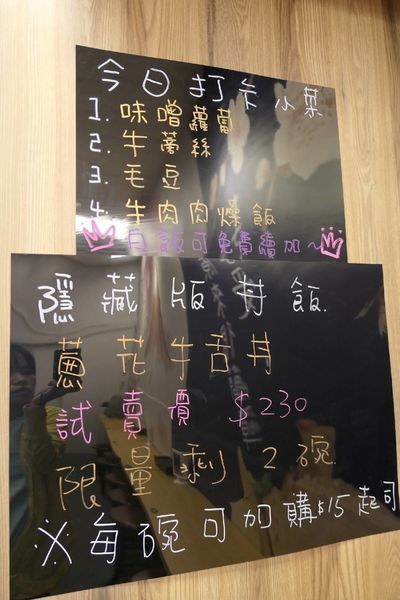 今日打卡小菜
1. 味噌蘿蔔
2. 牛蒡絲
3. 毛豆
4. 牛肉肉燥飯
白飯可免費續加~
隱藏版丼飯.
蔥花牛舌丼
試賣價 $230
限量剩2碗.
※每碗可加購$15起司